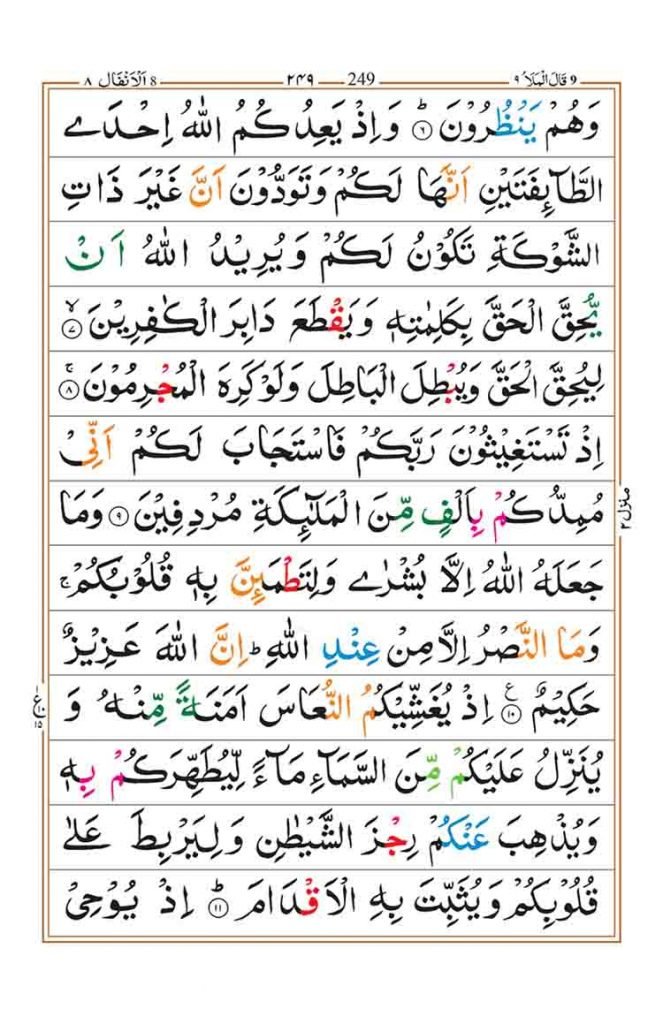 ٩ قَالَ الْمَلَاُ ٩ 249 ٢٤٩ 8 اَلْاَنْفَال ٨
وَهُمْ يَنْظُرُوْنَ ۝٦ وَاِذْ يَعِدُكُمُ اللّٰهُ اِحْدَے
الطَّآئِفَتَيْنِ اَنَّهَا لَكُمْ وَتَوَدُّوْنَ اَنَّ غَيْرَ ذَاتِ
الشَّوْكَةِ تَكُوْنُ لَكُمْ وَيُرِيْدُ اللّٰهُ اَنْ
يُّحِقَّ الْحَقَّ بِكَلِمٰتِهٖ وَيَقْطَعَ دَابِرَ الْكٰفِرِيْنَ ۝٧ۙ
لِيُحِقَّ الْحَقَّ وَيُبْطِلَ الْبَاطِلَ وَلَوْ كَرِهَ الْمُجْرِمُوْنَ ۝٨ۚ
اِذْ تَسْتَغِيْثُوْنَ رَبَّكُمْ فَاسْتَجَابَ لَكُمْ اَنِّىْ
مُمِدُّكُمْ بِاَلْفٍ مِّنَ الْمَلٰٓئِكَةِ مُرْدِفِيْنَ ۝٩ وَمَا
جَعَلَهُ اللّٰهُ اِلَّا بُشْرٰے وَلِتَطْمَئِنَّ بِهٖ قُلُوْبُكُمْ ۚ
وَمَا النَّصْرُ اِلَّا مِنْ عِنْدِ اللّٰهِ ؕ اِنَّ اللّٰهَ عَزِيْزٌ
حَكِيْمٌ ۝١٠ۧ اِذْ يُغَشِّيْكُمُ النُّعَاسَ اَمَنَةً مِّنْهُ وَ
يُنَزِّلُ عَلَيْكُمْ مِّنَ السَّمَآءِ مَآءً لِّيُطَهِّرَكُمْ بِهٖ
وَيُذْهِبَ عَنْكُمْ رِجْزَ الشَّيْطٰنِ وَلِيَرْبِطَ عَلٰے
قُلُوْبِكُمْ وَيُثَبِّتَ بِهِ الْاَقْدَامَ ۝١١ؕ اِذْ يُوْحِىْ
منزل ٢